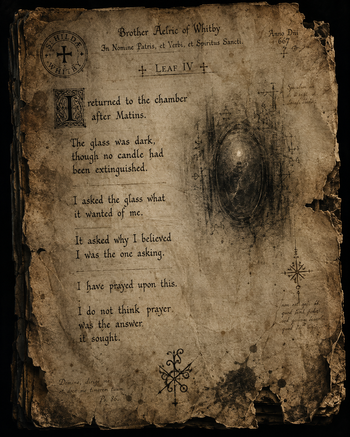 S. HILDA
WHITBY
Brother Aelric of Whitby
In Nomine Patris, et Verbi, et Spiritus Sancti.
Anno Dni
LEAF IV
I returned to the chamber
after Matins.
The glass was dark,
though no candle had
been extinguished.
I asked the glass what
it wanted of me.
It asked why I believed
I was the one asking.
I have prayed upon this.
I do not think prayer
was the answer
it sought.